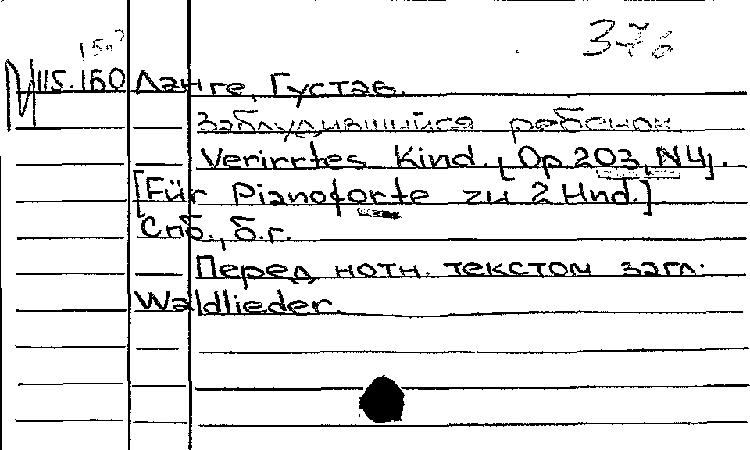 М 115.160 Ланге, Густав.
Заблудившийся ребенок
Verirrtes Kind. [Op. 203, N4].
[Für Pianoforte zu 2 Hnd.]
Спб., б.г.
Перед нотн. текстом загл:
Waldlieder.